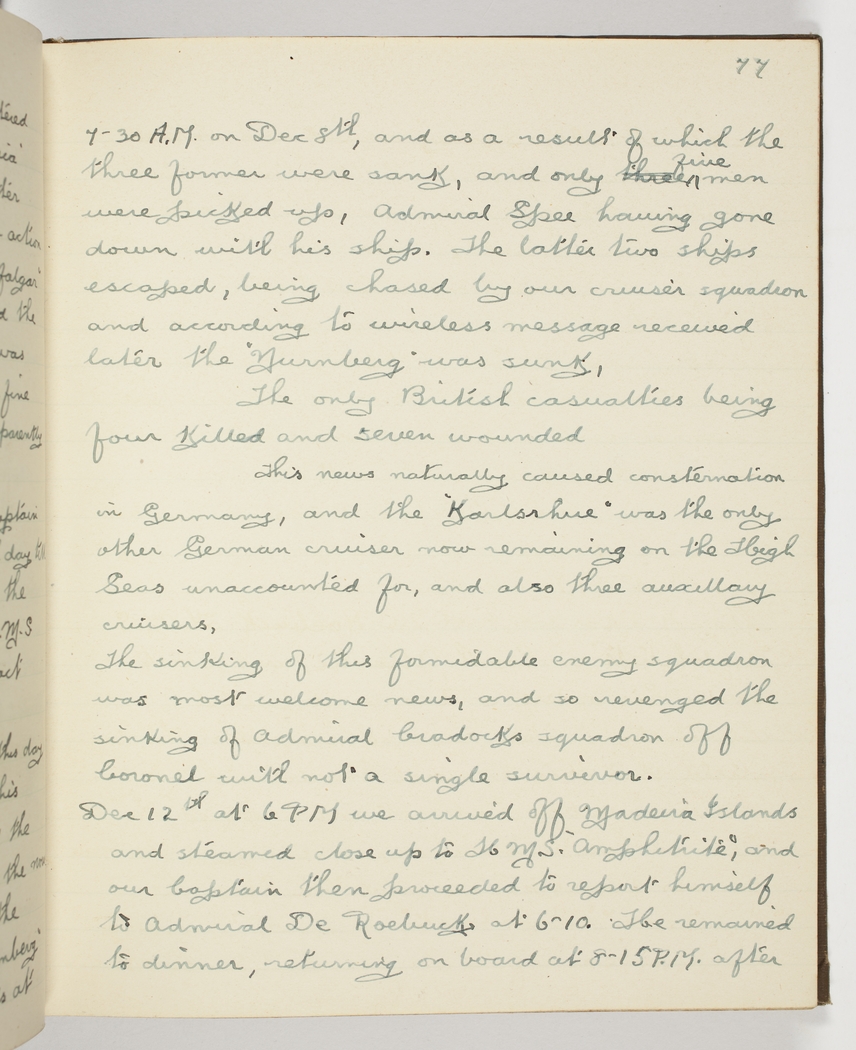 77
7-30 A.M. on Dec 8th, and as a result of which the
three former were sank, and only three five men
were picked up, Admiral Spee having gone
down with his ship. The latter two ships
escaped, being chased by our cruiser squadron
and according to wireless message received
later the "Nurnberg" was sunk,
The only British casualties being
four Killed and seven wounded
This news naturally caused consternation
in Germany, and the "Karlsrhue" was the only
other German cruiser now remaining on the High
Seas unaccounted for, and also three auxillary
cruisers,
The sinking of this formidable enemy squadron
was most welcome news, and so revenged the
sinking of Admiral Cradocks squadron off
Coronel with not a single survivor.
Dec 12th at 6 PM we arrived off Madeira Islands
and steamed close up to H.M.S. "Amphitrite", and
our Captain then proceeded to report himself
to Admiral De Roebuck at 6-10. He remained
to dinner, returning on board at 8-15 P.M. after